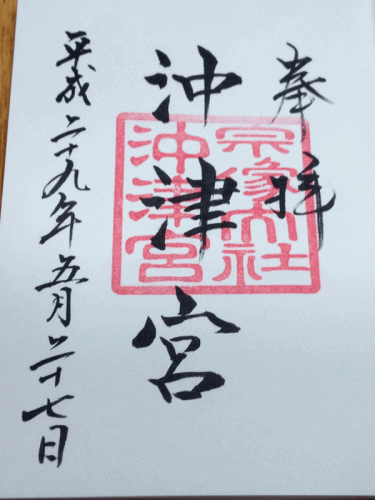 奉拝
沖津宮
宗像大社
沖津宮
平成二十九年五月二十七日